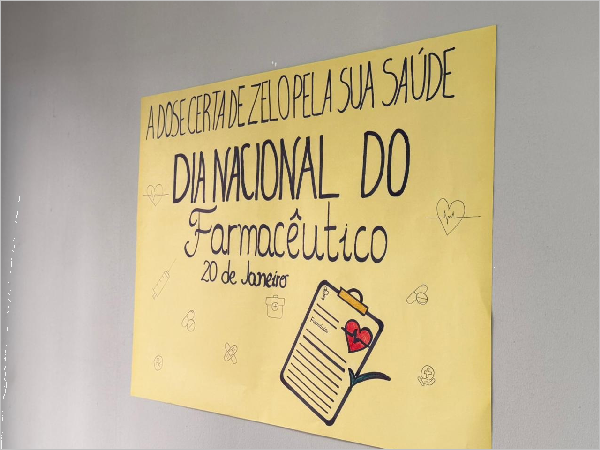 A DOSE CERTA DE ZELO PELA SUA SAÚDE
DIA NACIONAL DO
Farmacêutico
20 de Janeiro